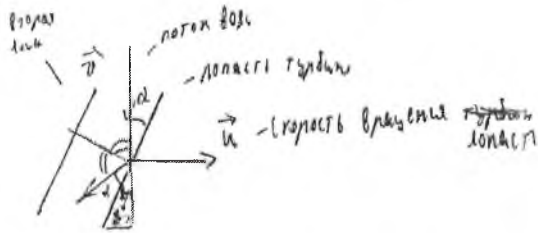 вторая
v
поток воды
α
лопасть турбины
u - скорость вращения
лопасти
α